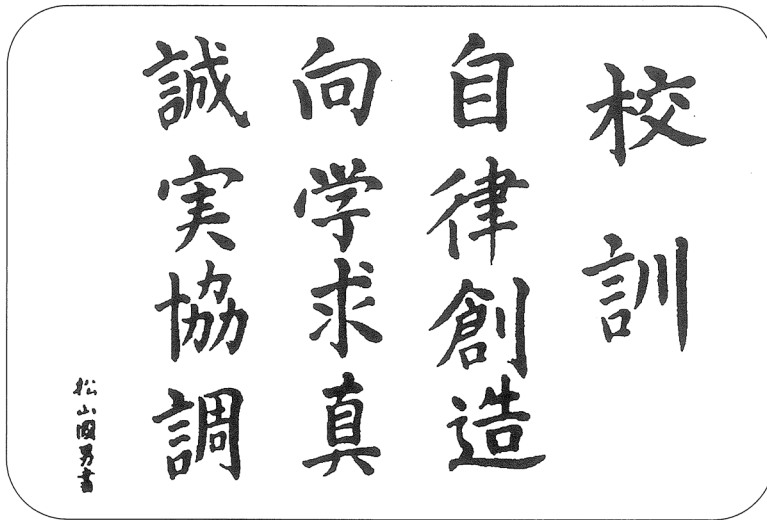 校訓
自律創造
向学求真
誠実協調
松山國男書